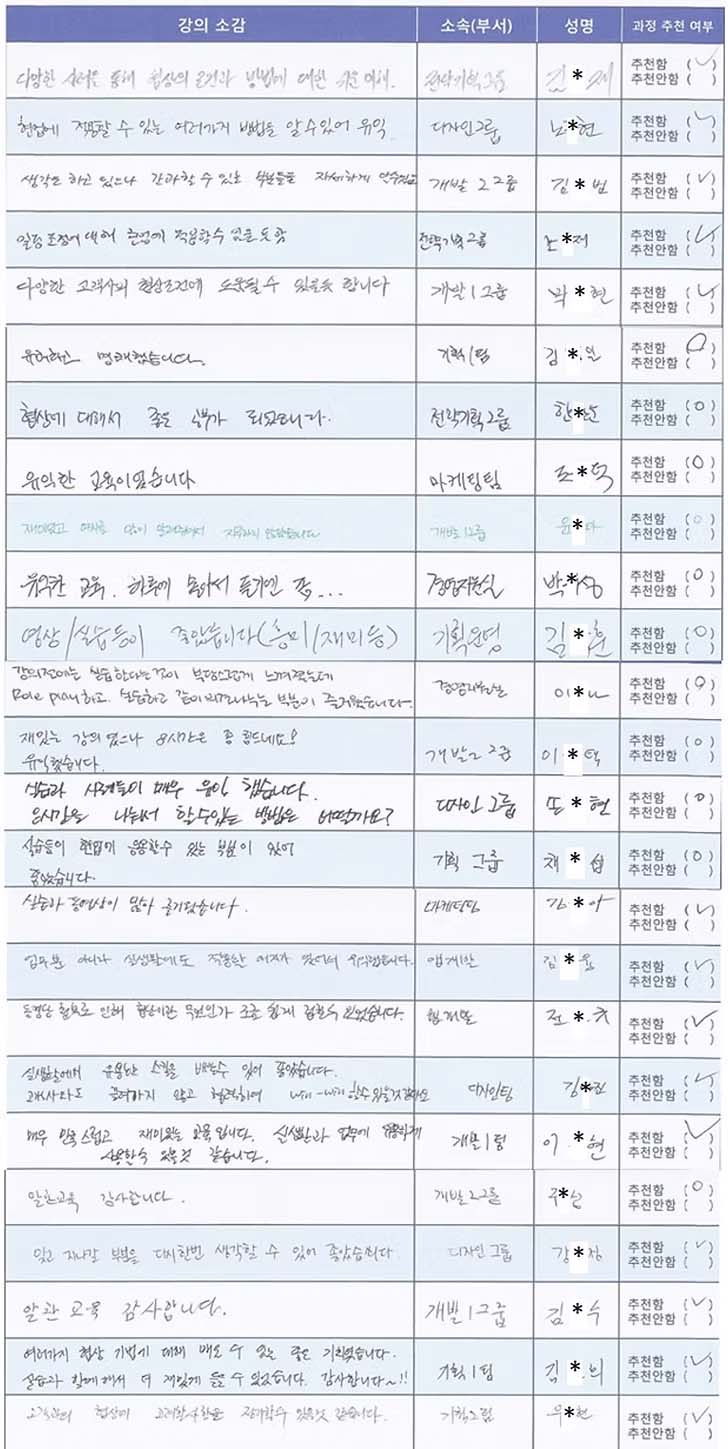 강의 소감 소속(부서) 성명 과정 추천 여부
다양한 사례를 통해 협상의 조건과 방법에 대한 쉬운 이해. 전략기획그룹 김*재 추천함 (✓)
추천안함 ( )
현업에 적용할 수 있는 여러가지 방법을 알 수 있어 유익. 디자인그룹 남*현 추천함 (✓)
추천안함 ( )
생각은 하고 있으나 간과할 수 있는 부분들을 자세하게 개발 2그룹 김*범 추천함 (✓)
추천안함 ( )
일정 조정에 대해 현업에 적용할 수 있을 듯 함 전략기획 2그룹 조*저 추천함 (✓)
추천안함 ( )
다양한 고객사와 협상조건에 도움될 수 있을듯 합니다 개발 1그룹 박*현 추천함 (✓)
추천안함 ( )
유익하고 명쾌했습니다. 기획1팀 김*일 추천함 (O)
추천안함 ( )
협상에 대해서 좋은 공부가 되었습니다. 전략기획2그룹 한* 추천함 (O)
추천안함 ( )
유익한 교육이었습니다 마케팅팀 조*덕 추천함 (O)
추천안함 ( )
재미있고 개발1그룹 윤* 추천함 (O)
추천안함 ( )
유익한 교육. 하루에 몰아서 듣기엔 좀... 경영지원실 박*상 추천함 (O)
추천안함 ( )
영상/실습등이 좋았습니다(흥미/재미등) 기획운영 김*훈 추천함 (O)
추천안함 ( )
강의전에는 실습한다는것이 부담스럽게 느껴졌는데 경영지원실 이*나 추천함 (O)
Role play하고 실습하고 같이 피드나누는 부분이 즐거웠습니다. 추천안함 ( )
재밌는 강의 였으나 8시간은 좀 힘드네요! 개발2그룹 이*덕 추천함 (O)
유익했습니다. 추천안함 ( )
실습과 사례들이 매우 유익 했습니다. 디자인 그룹 *현 추천함 (O)
8시간을 나눠서 할수있는 방법은 어떨까요? 추천안함 ( )
실습등이 현업에 응용할수 있는 부분이 있어 기획 그룹 채*섭 추천함 (O)
좋았습니다. 추천안함 ( )
실습과 동영상이 많아 즐거웠습니다. 마케팅팀 김*아 추천함 (✓)
추천안함 ( )
업무뿐 아니라 실생활에도 적용할 여지가 있어서 유익했습니다. 앱개발 김* 추천함 (✓)
추천안함 ( )
동영상 활용으로 인해 협상이란 무엇인가 조금 쉽게 접할 수 있었습니다. 웹개발 전* 추천함 (✓)
추천안함 ( )
실생활에서 유용한 스킬을 배울수 있어 좋았습니다. 디자인팀 김*진 추천함 (✓)
않고 협력하여 win-win 할 수 있을것 같아요 추천안함 ( )
매우 만족스럽고 재미있는 교육입니다. 실생활과 업무에 유용하게 개발1팀 이*현 추천함 (✓)
사용할수 있을것 같습니다. 추천안함 ( )
알찬교육 감사합니다. 개발2그룹 주* 추천함 (O)
추천안함 ( )
잊고 지나갈 부분을 다시한번 생각할 수 있어 좋았습니다 디자인그룹 강*장 추천함 (✓)
추천안함 ( )
알찬 교육 감사합니다. 개발1그룹 김*수 추천함 (✓)
추천안함 ( )
여러가지 협상 기법에 대해 배울 수 있는 좋은 기회였습니다. 기획1팀 김*의 추천함 (✓)
실습과 함께 해서 더 재밌게 들을 수 있었습니다. 감사합니다~!! 추천안함 ( )
고객과의 협상에 고려할사항을 점검할수 있을것 같습니다. 기획2팀 우*현 추천함 (✓)
추천안함 ( )